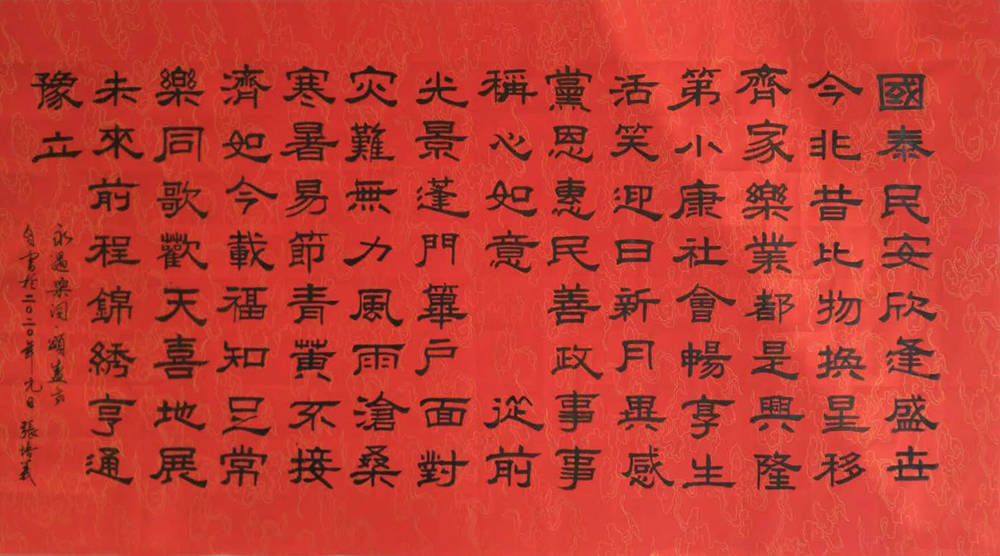 國泰民安欣逢盛世
今非昔比物換星移
齊家樂業都是興隆
第小康社會暢享生
活笑迎日新月異感
黨恩惠民善政事事
稱心如意 從前
光景蓬門篳户面對
灾難無力風雨滄桑
寒暑易節青黃不接
濟如今載福知足常
樂同歌歡天喜地展
未來前程錦綉亨通
豫立
永遇樂詞 頌盛世
自書於二〇二〇年元日 張